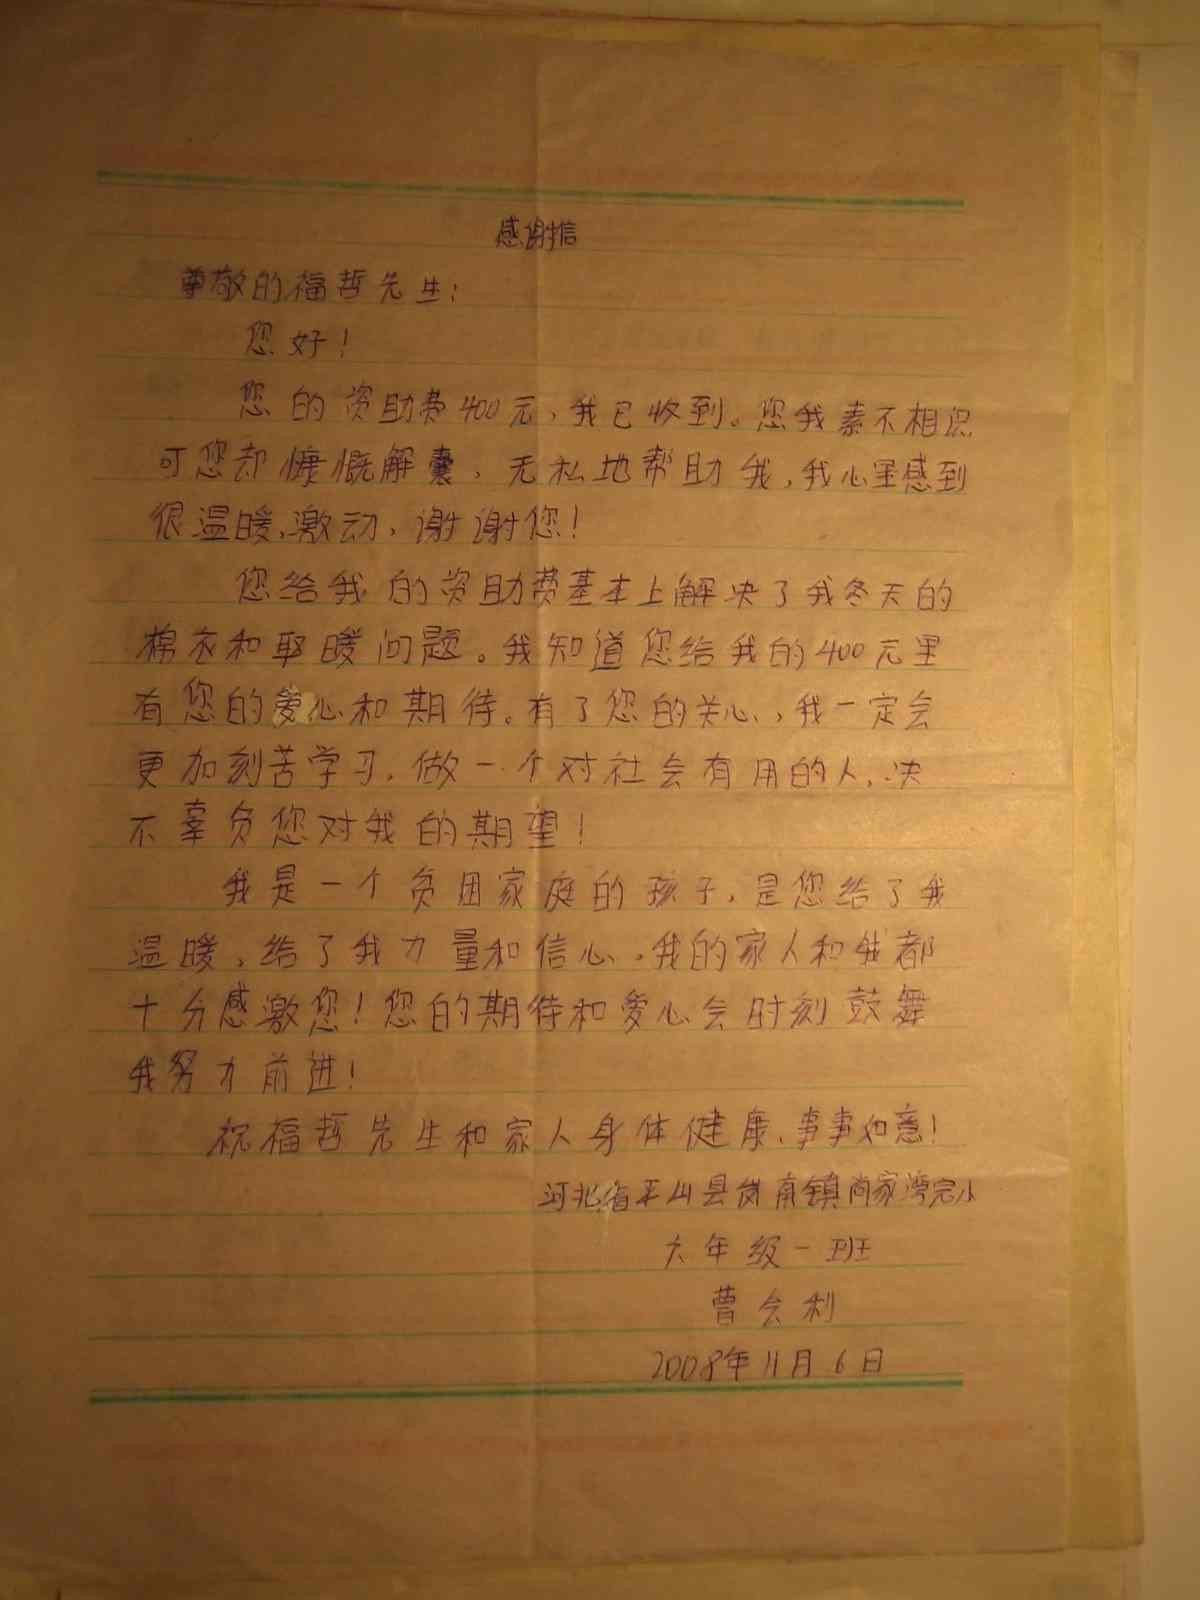 感谢信
尊敬的福哲先生:
您好!
您的资助费400元,我已收到。您我素不相识
可您却慷慨解囊,无私地帮助我,我心里感到
很温暖,激动,谢谢您!
您给我的资助费基本上解决了我冬天的
棉衣和取暖问题。我知道您给我的400元里
有您的爱心和期待。有了您的关心,我一定会
更加刻苦学习,做一个对社会有用的人,决
不辜负您对我的期望!
我是一个贫困家庭的孩子,是您给了我
温暖,给了我力量和信心,我的家人和我都
十分感激您!您的期待和爱心会时刻鼓舞
我努力前进!
祝福哲先生和家人身体健康、事事如意!
河北省平山县岗南镇尚家湾完小
六年级一班
曹会利
2008年11月6日